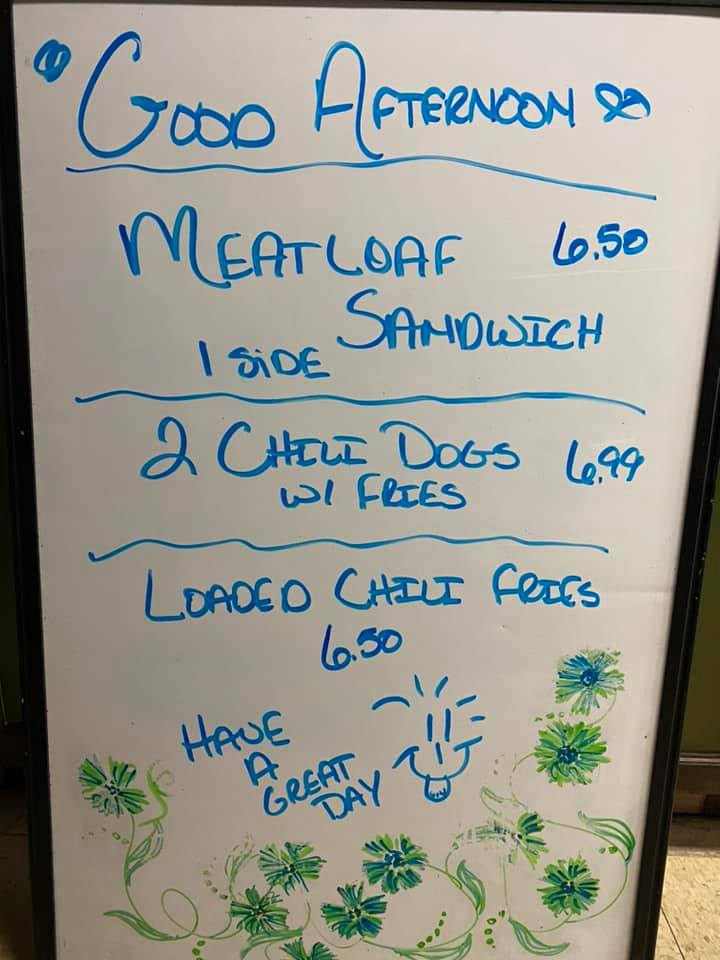 GOOD AFTERNOON
MEATLOAF 6.50
SANDWICH
1 SiDE
2 CHILI DOGS 6.99
W/ FRIES
LOADED CHILI FRIES
6.50
HAVE
A
GREAT
DAY